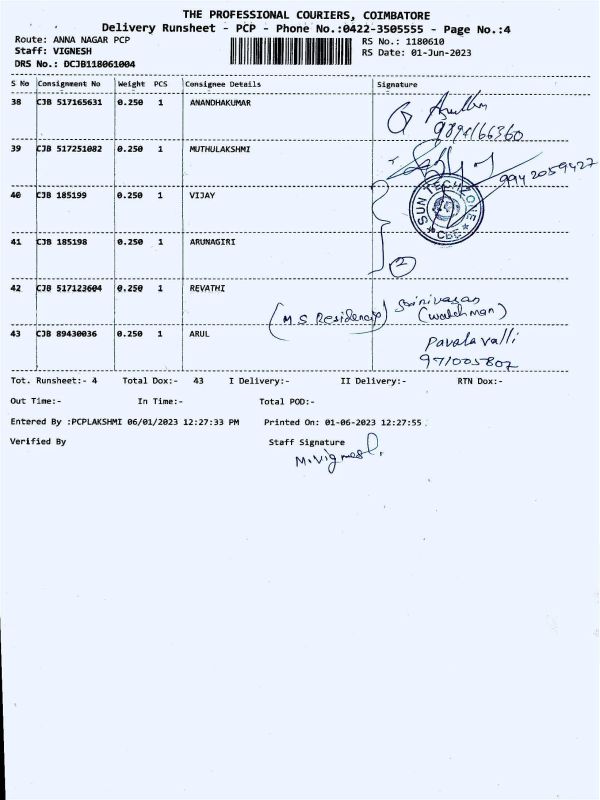 THE PROFESSIONAL COURIERS, COIMBATORE
Delivery Runsheet - PCP - Phone No.:0422-3505555 - Page No.:4
Route: ANNA NAGAR PCP
RS No.: 1180610
Staff: VIGNESH
RS Date: 01-Jun-2023
DRS No.: DCJB118061004
S No Consignment No Weight PCS Consignee Details Signature
38 CJB 517165631 0.250 1 ANANDHAKUMAR
9894166360
39 CJB 517251082 0.250 1 MUTHULAKSHMI
9942059427
40 CJB 185199 0.250 1 VIJAY
SUN TECHZONE
* CBE *
41 CJB 185198 0.250 1 ARUNAGIRI
2
42 CJB 517123604 0.250 1 REVATHI
(M S Residency) Srinivasan
(watchman)
43 CJB 89430036 0.250 1 ARUL
Pavalavalli
971005802
Tot. Runsheet:- 4 Total Dox:- 43 I Delivery:- II Delivery:- RTN Dox:-
Out Time:- In Time:- Total POD:-
Entered By :PCPLAKSHMI 06/01/2023 12:27:33 PM Printed On: 01-06-2023 12:27:55
Verified By Staff Signature
M.Vignesh.